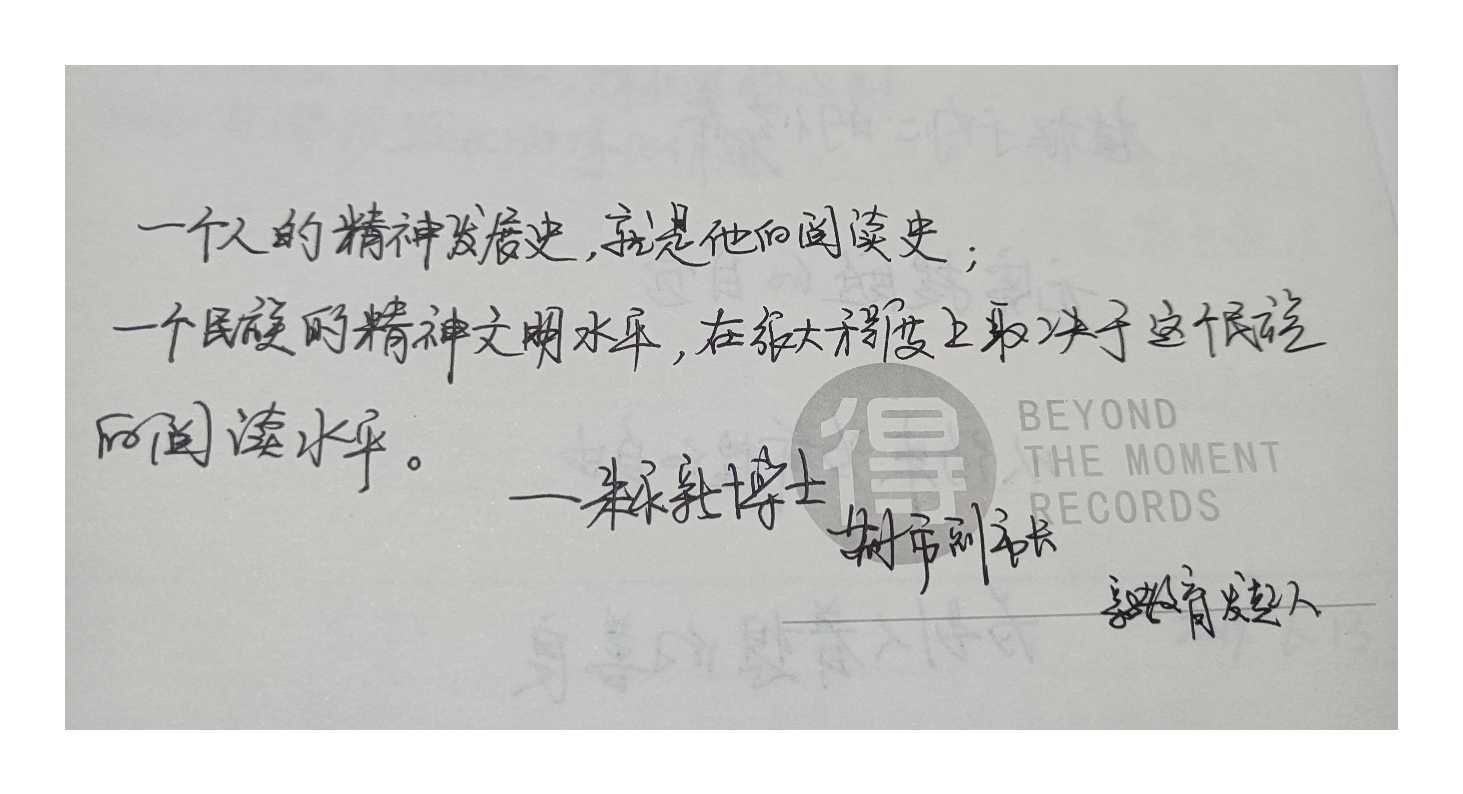 一个人的精神发展史,就是他的阅读史;
一个民族的精神文明水平,在很大程度上取决于这个民族
的阅读水平。
——朱永新博士
苏州市副市长
新教育发起人
得
BEYOND
THE MOMENT
RECORDS